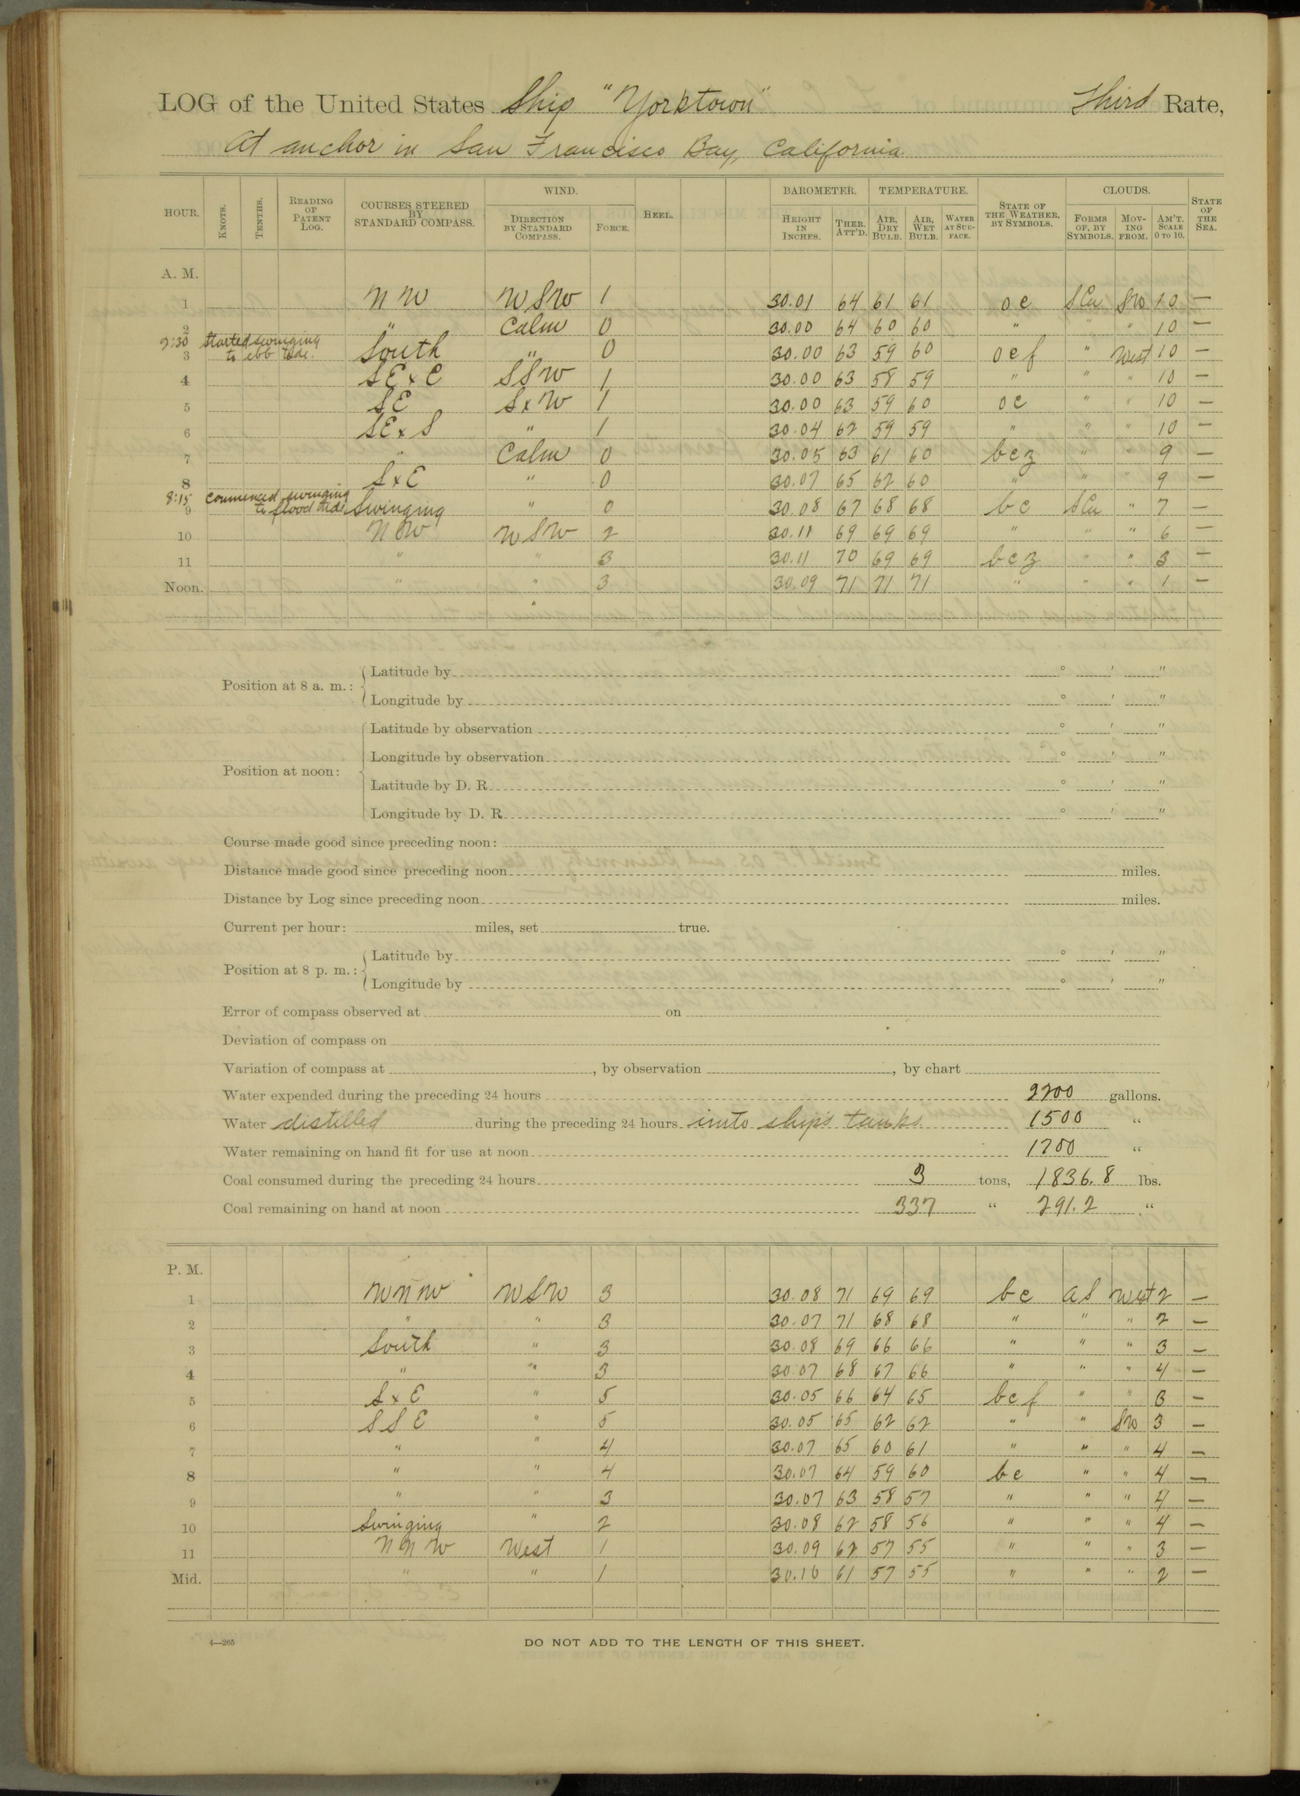 LOG of the United States Ship "Yorktown" Third Rate,
At anchor in San Francisco Bay, California
HOUR. KNOTS. TENTHS. READING OF PATENT LOG. COURSES STEERED BY STANDARD COMPASS. WIND. DIRECTION BY STANDARD COMPASS. FORCE. HEEL. BAROMETER. HEIGHT IN INCHES. THER. ATT'D. TEMPERATURE. AIR, DRY BULB. AIR, WET BULB. WATER AT SURFACE. STATE OF THE WEATHER, BY SYMBOLS. CLOUDS. FORMS OF, BY SYMBOLS. MOVING FROM. AM'T. SCALE 0 TO 10. STATE OF THE SEA.
A. M.
1 NW WSW 1 30.01 64 61 61 oc SCu SW 10 —
2 " Calm 0 30.00 64 60 60 " " " 10 —
2:30 Started swinging to ebb tide.
3 South " 0 30.00 63 59 60 ocf " West 10 —
4 SExE SSW 1 30.00 63 58 59 " " " 10 —
5 SE SxW 1 30.00 63 59 60 oc " " 10 —
6 SExS " 1 30.04 62 59 59 " " " 10 —
7 " Calm 0 30.05 63 61 60 bcz " " 9 —
8 SxE " 0 30.07 65 62 60 " " " 9 —
8:15 Commenced swinging to flood tide
9 Swinging " 0 30.08 67 68 68 bc SCu " 7 —
10 NW WSW 2 30.11 69 69 69 " " " 6 —
11 " " 3 30.11 70 69 69 bcz " " 3 —
Noon. " " 3 30.09 71 71 71 " " " 1 —
Position at 8 a. m.: Latitude by ° ' "
Longitude by ° ' "
Position at noon: Latitude by observation ° ' "
Longitude by observation ° ' "
Latitude by D. R. ° ' "
Longitude by D. R. ° ' "
Course made good since preceding noon:
Distance made good since preceding noon miles.
Distance by Log since preceding noon miles.
Current per hour: miles, set true.
Position at 8 p. m.: Latitude by ° ' "
Longitude by ° ' "
Error of compass observed at on
Deviation of compass on
Variation of compass at , by observation , by chart
Water expended during the preceding 24 hours 2200 gallons.
Water distilled during the preceding 24 hours into ship's tanks 1500 "
Water remaining on hand fit for use at noon 1700 "
Coal consumed during the preceding 24 hours 3 tons, 1836.8 lbs.
Coal remaining on hand at noon 337 " 291.2 "
P. M.
1 WNW WSW 3 30.08 71 69 69 bc AS West 2 —
2 " " 3 30.07 71 68 68 " " " 2 —
3 South " 3 30.08 69 66 66 " " " 3 —
4 " " 3 30.07 68 67 66 " " " 4 —
5 SxE " 5 30.05 66 64 65 bcf " " 3 —
6 SSE " 5 30.05 65 62 62 " " SW 3 —
7 " " 4 30.07 65 60 61 " " " 4 —
8 " " 4 30.07 64 59 60 bc " " 4 —
9 " " 3 30.07 63 58 57 " " " 4 —
10 Swinging " 2 30.08 62 58 56 " " " 4 —
11 NNW West 1 30.09 62 57 55 " " " 3 —
Mid. " " 1 30.10 61 57 55 " " " 2 —
4—265
DO NOT ADD TO THE LENGTH OF THIS SHEET.